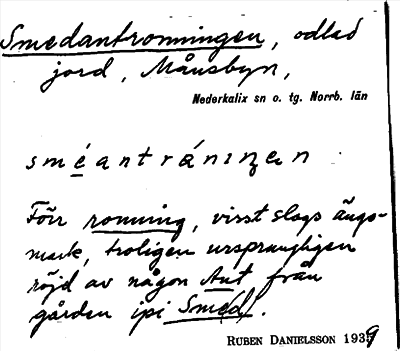 Smedantronningen, odlad
jord, Månsbyn,
Nederkalix sn o. tg. Norrb. län
sméantránıngen
Förr ronning, visst slags ängs-
mark, troligen ursprungligen
röjd av någon Ant från
gården ipi Smed.
RUBEN DANIELSSON 1939